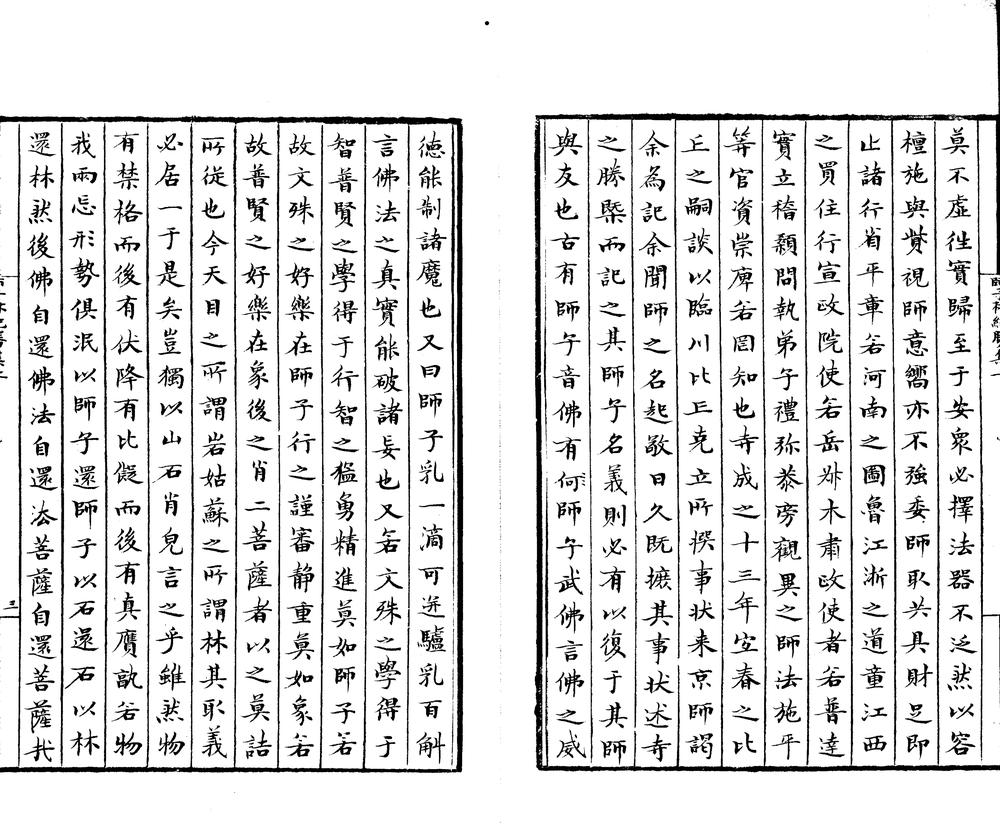 莫不虛徃實歸至于安衆必擇法器不泛然以容
檀施與貲視師意嚮亦不強委師取共具財足即
止諸行省平章若河南之圖魯江淅之道童江西
之買住行宣政院使若岳木肅政使者若普達
實立稽顙問執弟子禮弥恭旁觀異之師法施平
等官資崇庳若罔知也寺成之十三年室春之比
丘之嗣談以臨川比丘克立所撰事状来京師謁
余為記余聞師之名起敬日久既摭其事状述寺
之勝槩而記之其師子名義則必有以復于其師
與友也古有師子音佛有何師子武佛言佛之威
徳能制諸魔也又曰師子乳一滴可迸驢乳百斛
言佛法之真實能破諸妄也又若文殊之學得于
智普賢之學得于行智之猛勇精進莫如師子若
故文殊之好樂在師子行之謹審静重莫如象若
故普賢之好樂在象後之肖二菩薩者以之莫詰
所從也今天目之所謂岩姑蘇之所謂林其取義
必居一于是矣豈獨以山石肖皃言之乎雖然物
有禁格而後有伏降有比儗而後有真贋孰若物
我兩忘形勢俱泯以師子還師子以石還石以林
還林然後佛自還佛法自還法菩薩自還菩薩我
三